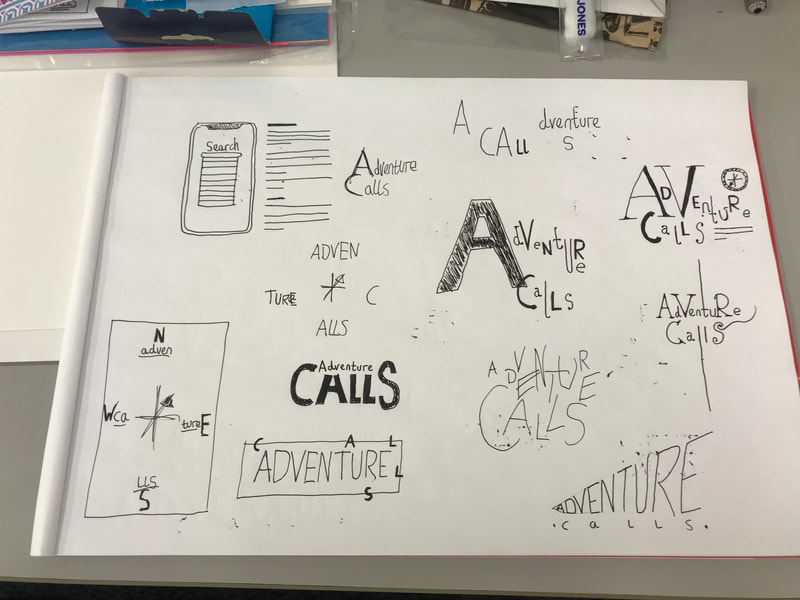 JONES
Search
Adventure
Calls
A dventure
CALL S
ADVENtURe
CallS
AdVeNtURe
CallS
ADVEN
TURE C
ALLS
AdVentuRe
CallS
N
adven
Wca tureE
LLS
S
Adventure
CALLS
C A L
ADVENTURE L
S
ADVENtURE
CALLS
ADVENTURE
. C a L L S .